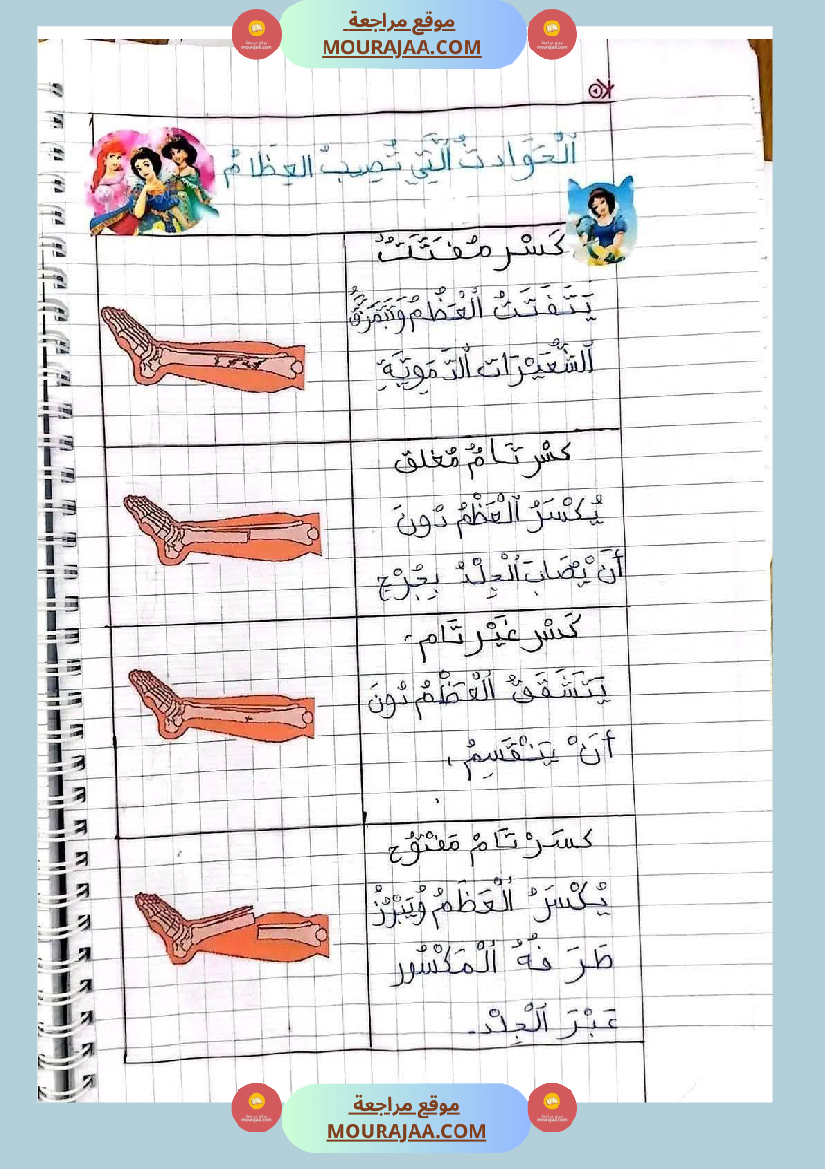 موقع مراجعة
MOURAJAA.COM
اَلْحَوَادثُ اَلَّتِي تُصِيبُ العِظَامُ
كَسْر مُفَتَّتُ
يَتَفَتَتُ اَلْعَظْمُ وَيَتَمَزَّقُ
اَلشُّعَيْرَات اَلدَّمَوِيَّةِ
كسْر تَامُ مُغلق
يُكْسَرُ اَلْعَظْمُ دُونَ
أَنْ يُصَابَ اَلْجِلْدُ بِجُرْحٍ
كَسْر غَيْر تَّام.
يَتَشَقَقُ اَلْعَظْمُ دُونَ
أَنْ يَنْقَسِمُ.
كسَرْ تَامْ مَفْتُوُح
يُكْسَرُ اَلْعَظَمُ وُيَبْرُزُ
طَرَفُهُ اَلْمَكْسُور
عَبْرَ اَلْجِلْد.
موقع مراجعة
MOURAJAA.COM